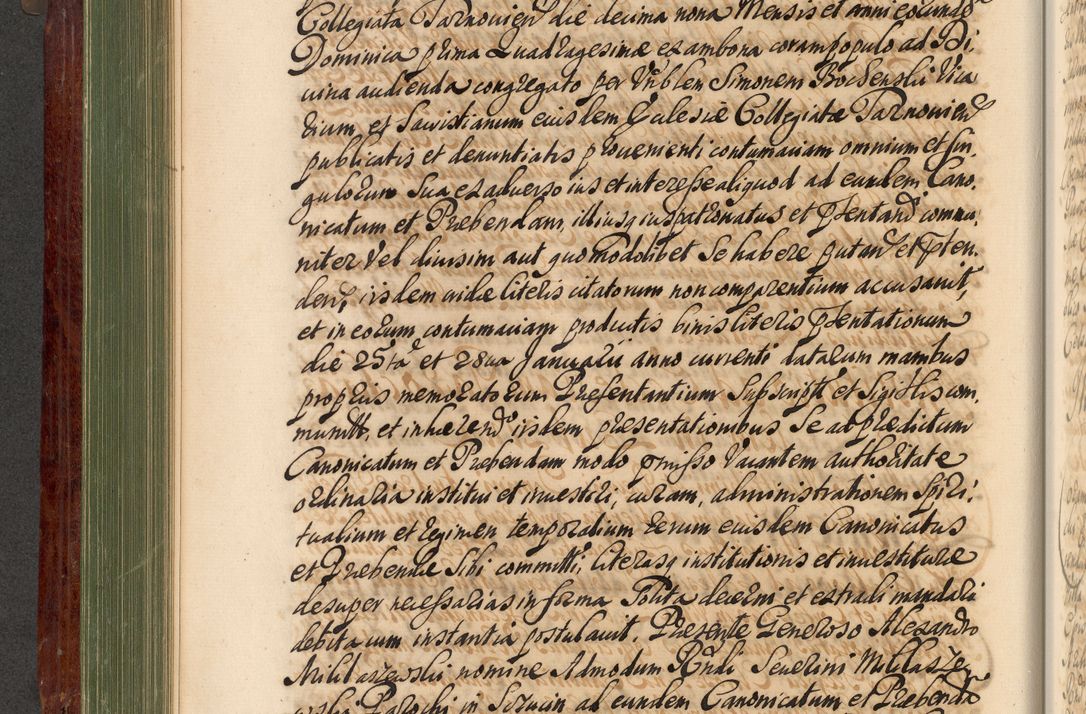 Collegiata Tarnovien die decima nona Mensis et anni eorunde
Dominica prima Quadragesimæ ex ambona coram populo ad Di,
uina audienda congregato per Vnblem Simonem Bochenski Vica
rium, et Sacristianum eiusdem Ecclesiæ Collegiatæ Tarnovien
publicatis et denuntiatis provenienti contumaciam omnium et sin,
gulorum sua ex adverso ius et interesse aliquod ad eundem Cano,
nicatum et Præbendam, illiusq iuspatronatus et pñtandi commu,
niter vel divisim aut quomodolibet se habere putan et pten,
den, iisdem in dictæ literis citatorum non comparentium accusavit,
et in eorum contumaciam productis binis literis pñtationum
die 25ta et 28va Januarii anno currenti datarum manibus
propriis memoratorum Præsentantium subscript et Sigillis com,
munit, et inhærend iisdem præsentationibus se ad præditum
Canonicatum et Præbendam modo pmisso Vacantem authoritate
ordinaria institui et investiri, curam, administrationem spiri,
tualium et regimen temporalium rerum eiusdem Canonicatus
et Præbendæ sibi committi, literasq institutionis et investituræ
desuper necessarias in forma solita decerni et extradi mandari
debita cum instantia postulavit. Præsente Generoso Alexandro
Milaszewski nomine Admodum Rndi Severini Millasze,
wski Parochi in Szczucin ad eundem Canonicatum et Præbendā